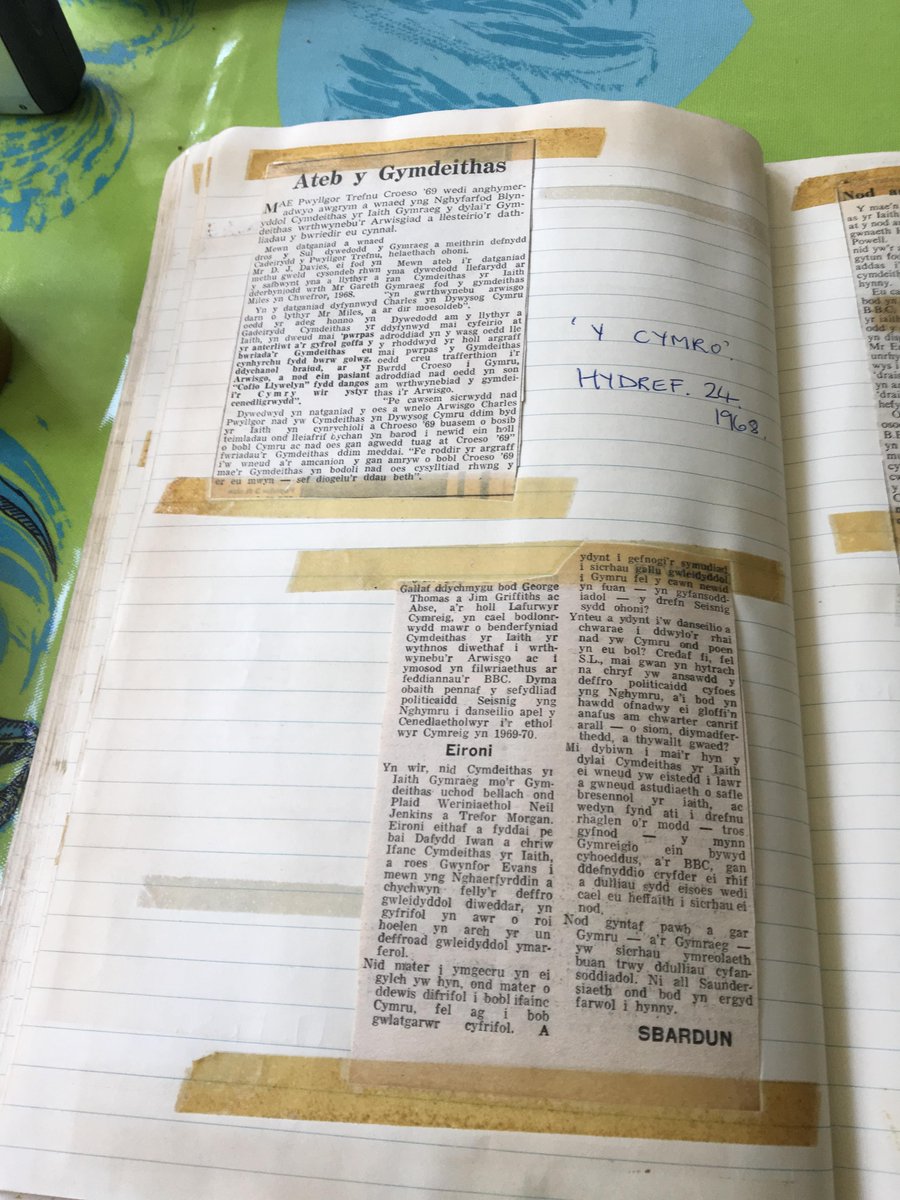 Ateb y Gymdeithas
MAE Pwyllgor Trefnu Croeso '69 wedi anghymer-
adwyo awgrym a wnaed yng Nghyfarfod Blyn-
yddol Cymdeithas yr Iaith Gymraeg y dylai'r Gym-
deithas wrthwynebu'r Arwisgiad a llesteirio'r dath-
liadau y bwriedir eu cynnal.
Mewn datganiad a wnaed
dros y Sul dywedodd
Cadeirydd y Pwyllgor Trefnu,
Mr D. J. Davies, ei fod yn
methu gweld cysondeb rhwng
y safbwynt yna a llythyr a
dderbyniodd wrth Mr Gareth
Miles yn Chwefror, 1968.
Yn y datganiad dyfynnwyd
darn o lythyr Mr Miles, a
oedd yr adeg honno yn
Gadeirydd Cymdeithas yr
Iaith, yn dweud mai 'pwrpas
yr anterliwt a'r gyfrol goffa y
bwriada'r Gymdeithas eu
cynhyrchu fydd bwrw golwg,
ddychanol braidd, ar yr
Arwisgo, a nod ein pasiant
"Cofio Llywelyn" fydd dangos
i'r Cymry wir ystyr
cenedligrwydd".
Dywedwyd yn natganiad y
Pwyllgor nad yw Cymdeithas
yr Iaith yn cynrychioli
teimladau ond lleiafrif bychan
o bobl Cymru ac nad oes gan
fwriadau'r Gymdeithas ddim
i'w wneud a'r amcanion y
mae'r Gymdeithas yn bodoli
er eu mwyn — sef diogelu'r
Gymraeg a meithrin defnydd
helaethach ohoni.
Mewn ateb i'r datganiad
yma dywedodd llefarydd ar
ran Cymdeithas yr Iaith
Gymraeg fod y gymdeithas
"yn gwrthwynebu arwisgo
Charles yn Dywysog Cymru
ar dir moesoldeb".
Dywedodd am y llythyr a
ddyfynwyd mai cyfeirio at
adroddiad yn y wasg oedd lle
y rhoddwyd yr holl argraff
mai pwrpas y Gymdeithas
oedd creu trafferthion i'r
Bwrdd Croeso i Gymru,
adroddiad nad oedd yn son
am wrthwynebiad y gymdei-
thas i'r Arwisgo.
"Pe cawsem sicrwydd nad
oes a wnelo Arwisgo Charles
yn Dywysog Cymru ddim byd
a Chroeso '69 buasem o bosib
yn barod i newid ein holl
agwedd tuag at Croeso '69"
meddai. "Fe roddir yr argraff
gan amryw o bobl Croeso '69
nad oes cysylltiad rhwng y
ddau beth".
'Y CYMRO'.
HYDREF. 24
1968.
Gallaf ddychmygu bod George
Thomas a Jim Griffiths ac
Abse, a'r holl Lafurwyr
Cymreig, yn cael bodlonr-
wydd mawr o benderfyniad
Cymdeithas yr Iaith yr
wythnos diwethaf i wrth-
wynebu'r Arwisgo ac i
ymosod yn filwriaethus ar
feddiannau'r BBC. Dyma
obaith pennaf y sefydliad
politicaidd Seisnig yng
Nghymru i danseilio apel y
Cenedlaetholwyr i'r ethol
wyr Cymreig yn 1969-70.
Eironi
Yn wir, nid Cymdeithas yr
Iaith Gymraeg mo'r Gym-
deithas uchod bellach ond
Plaid Weriniaethol Neil
Jenkins a Trefor Morgan.
Eironi eithaf a fyddai pe
bai Dafydd Iwan a chriw
Ifanc Cymdeithas yr Iaith,
a roes Gwynfor Evans i
mewn yng Nghaerfyrddin a
chychwyn felly'r deffro
gwleidyddol diweddar, yn
gyfrifol yn awr o roi
hoelen yn arch yr un
deffroad gwleidyddol ymar-
ferol.
Nid mater i ymgecru yn ei
gylch yw hyn, ond mater o
ddewis difrifol i bobl ifainc
Cymru, fel ag i bob
gwlatgarwr cyfrifol. A
ydynt i gefnogi'r symudiad
i sicrhau gallu gwleidyddol
i Gymru fel y cawn newid
yn fuan — yn gyfansodd-
iadol — y drefn Seisnig
sydd ohoni?
Ynteu a ydynt i'w danseilio a
chwarae i ddwylo'r rhai
nad yw Cymru ond poen
yn eu bol? Credaf fi, fel
S.L., mai gwan yn hytrach
na chryf yw ansawdd y
deffro politicaidd cyfoes
yng Nghymru, a'i bod yn
hawdd ofnadwy ei gloffi'n
anafus am chwarter canrif
arall — o siom, diymadfer-
thedd, a thywallt gwaed?
Mi dybiwn i mai'r hyn y
dylai Cymdeithas yr Iaith
ei wneud yw eistedd i lawr
a gwneud astudiaeth o safle
bresennol yr iaith, ac
wedyn fynd ati i drefnu
rhaglen o'r modd — tros
gyfnod — y mynn
Gymreigio ein bywyd
cyhoeddus, a'r BBC, gan
ddefnyddio cryfder ei rhif
a dulliau sydd eisoes wedi
cael eu heffaith i sicrhau ei
nod.
Nod gyntaf pawb a gar
Gymru — a'r Gymraeg —
yw sicrhau ymreolaeth
buan trwy ddulliau cyfan-
soddiadol. Ni all Saunder-
siaeth ond bod yn ergyd
farwol i hynny.
SBARDUN
Y mae'n
as yr Iaith
at y nod a
gwnaeth
Powell.
nid yw'r
addas i
hynny.
bod yn
B.B.C.